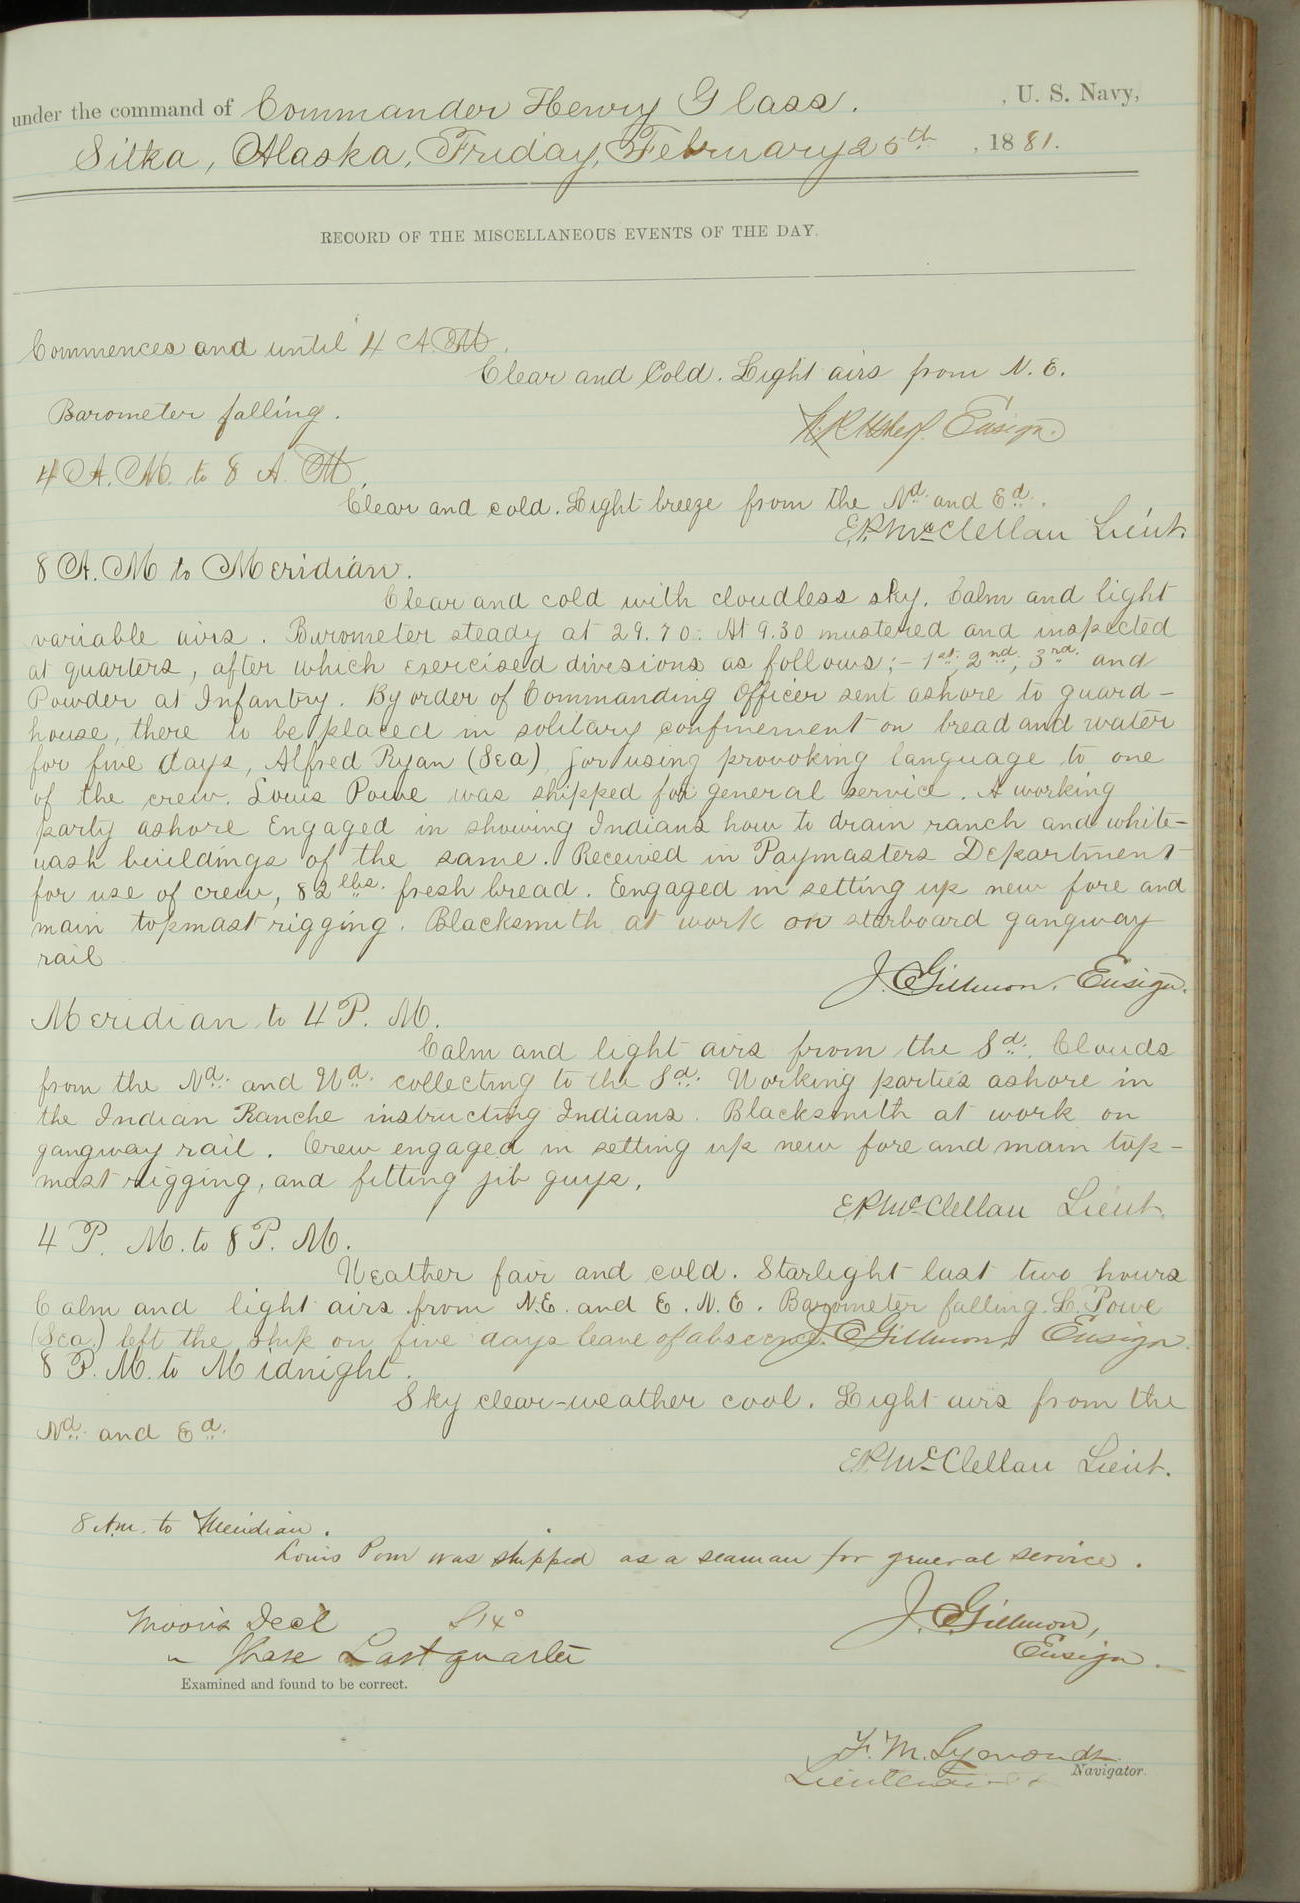 under the command of Commander Henry Glass. , U. S. Navy,
Sitka, Alaska, Friday, February 25th , 1881.
RECORD OF THE MISCELLANEOUS EVENTS OF THE DAY.
Commences and until 4 A.M.
Clear and Cold. Light airs from N. E.
Barometer falling.
Ensign.
4 A. M. to 8 A. M.
Clear and cold. Light breeze from the Nd. and Ed.
E.P. McClellan Lieut.
8 A. M to Meridian.
Clear and cold with cloudless sky. Calm and light
variable airs. Barometer steady at 29.70. At 9.30 mustered and inspected
at quarters, after which exercised divisions as follows;- 1st, 2nd, 3rd and
Powder at Infantry. By order of Commanding Officer sent ashore to guard-
house, there to be placed in solitary confinement on bread and water
for five days, Alfred Ryan (Sea) for using provoking language to one
of the crew. Louis Powe was shipped for general service. A working
party ashore Engaged in showing Indians how to drain ranch and white-
wash buildings of the same. Received in Paymasters Department
for use of crew, 82 lbs. fresh bread. Engaged in setting up new fore and
main topmast rigging. Blacksmith at work on starboard gangway
rail
J. C. Gillmor, Ensign.
Meridian to 4 P. M.
Calm and light airs from the Sd. Clouds
from the Nd. and Wd. collecting to the Sd. Working parties ashore in
the Indian Ranche instructing Indians. Blacksmith at work on
gangway rail. Crew engaged in setting up new fore and main top-
mast rigging, and fitting jib guys.
E.P. McClellan Lieut.
4 P. M. to 8 P. M.
Weather fair and cold. Starlight last two hours
Calm and light airs from N.E. and E. N. E. Barometer falling. L. Powe
(Sea.) left the ship on five days leave of absence. J. C. Gillmor, Ensign.
8 P. M. to Midnight.
Sky clear-weather cool. Light airs from the
Nd. and Ed.
E.P. McClellan Lieut.
8 A.m. to Meridian.
Louis Powe was shipped as a seaman for general service.
J. C. Gillmor,
Ensign.
Moon's Decl S 14°
" Phase Last quarter
Examined and found to be correct.
F. M. Symonds
Lieutenant Navigator.